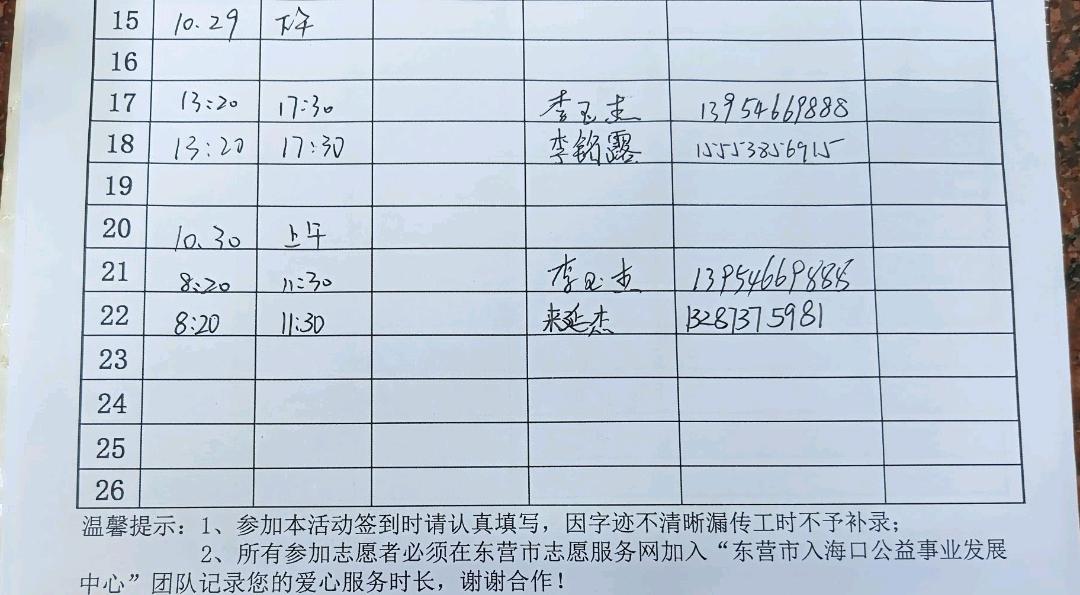 15 10.29 下午
16
17 13:20 17:30 李玉杰 13954669888
18 13:20 17:30 李铭露 15553856915
19
20 10.30 上午
21 8:20 11:30 李玉杰 13954669888
22 8:20 11:30 来延杰 13287375981
23
24
25
26
温馨提示：1、参加本活动签到时请认真填写，因字迹不清晰漏传工时不予补录；
2、所有参加志愿者必须在东营市志愿服务网加入“东营市入海口公益事业发展
中心”团队记录您的爱心服务时长，谢谢合作！